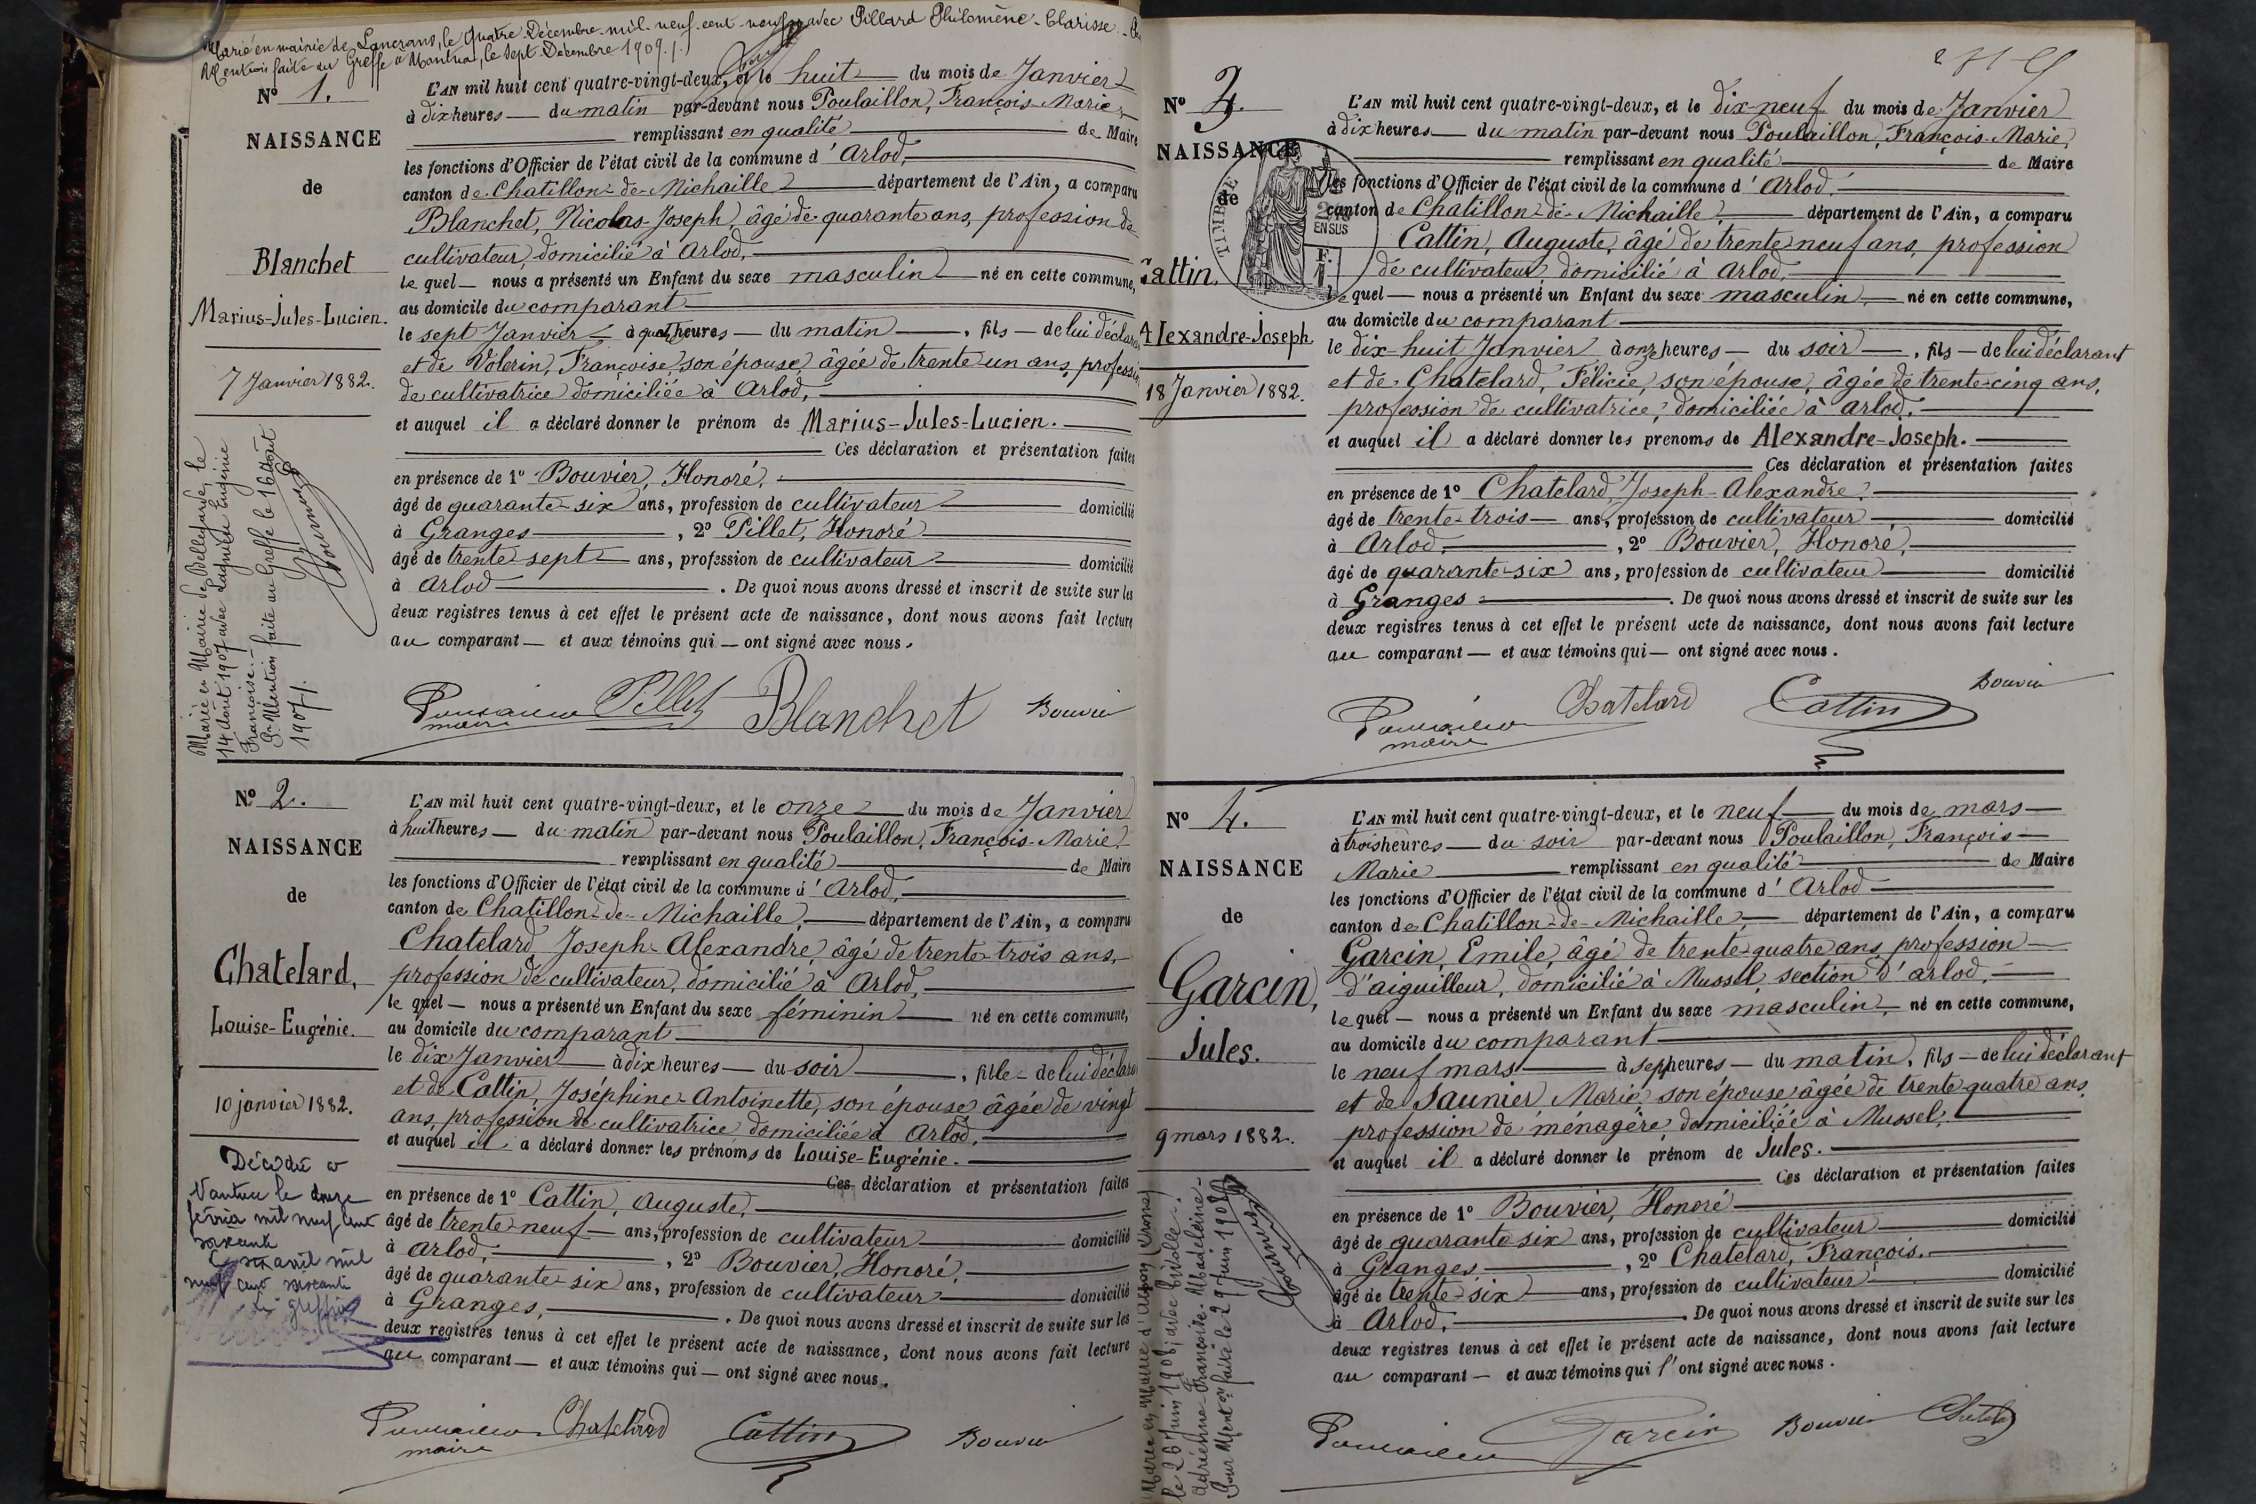 Marié en mairie de Lancrans, le Quatre Décembre mil neuf cent neuf avec Pillard Philomène-Clarisse
Mention faite au Greffe à Nantua, le sept Décembre 1909.
N° 1.
NAISSANCE
de
Blanchet
Marius-Jules-Lucien.
7 Janvier 1882.
Marié en Mairie de Bellegarde, le
14 Août 1907 avec Laquière Eugénie
Françoise.-
Pr. Mention faite au Greffe le 16 Août
1907.
L'AN mil huit cent quatre-vingt-deux, et le huit du mois de Janvier
à dix heures du matin par-devant nous Poulaillon, François-Marie,
remplissant en qualité de Maire
les fonctions d'Officier de l'état civil de la commune d'Arlod,
canton de Chatillon-de-Michaille département de l'Ain, a comparu
Blanchet, Nicolas-Joseph, âgé de quarante ans, profession de
cultivateur, domicilié à Arlod,
le quel nous a présenté un Enfant du sexe masculin né en cette commune,
au domicile du comparant
le sept Janvier à quatre heures du matin, fils de lui déclarant
et de Volerin, Françoise, son épouse, âgée de trente un ans, profession
de cultivatrice domiciliée à Arlod,
et auquel il a déclaré donner le prénom de Marius-Jules-Lucien.
Ces déclaration et présentation faites
en présence de 1° Bouvier, Honoré,
âgé de quarante-six ans, profession de cultivateur domicilié
à Granges, 2° Pillet, Honoré
âgé de trente sept ans, profession de cultivateur domicilié
à Arlod. De quoi nous avons dressé et inscrit de suite sur les
deux registres tenus à cet effet le présent acte de naissance, dont nous avons fait lecture
au comparant et aux témoins qui ont signé avec nous.
Poulaillon Pillet Blanchet Bouvier
maire
N° 2.
NAISSANCE
de
Chatelard,
Louise-Eugénie.
10 janvier 1882.
Décédée à
Nantua le douze
février mil neuf cent
soixante
Le six avril mil
neuf cent soixante
Le greffier
L'AN mil huit cent quatre-vingt-deux, et le onze du mois de Janvier
à huit heures du matin par-devant nous Poulaillon, François-Marie,
remplissant en qualité de Maire
les fonctions d'Officier de l'état civil de la commune d'Arlod,
canton de Chatillon-de-Michaille, département de l'Ain, a comparu
Chatelard, Joseph-Alexandre, âgé de trente-trois ans,
profession de cultivateur, domicilié à Arlod,
le quel nous a présenté un Enfant du sexe féminin né en cette commune,
au domicile du comparant
le dix Janvier à dix heures du soir, fille de lui déclarant
et de Cattin, Joséphine-Antoinette, son épouse âgée de vingt
ans, profession de cultivatrice domiciliée à Arlod,
et auquel il a déclaré donner les prénoms de Louise-Eugénie.
Ces déclaration et présentation faites
en présence de 1° Cattin, Auguste,
âgé de trente-neuf ans, profession de cultivateur domicilié
à Arlod, 2° Bouvier, Honoré,
âgé de quarante-six ans, profession de cultivateur domicilié
à Granges, De quoi nous avons dressé et inscrit de suite sur les
deux registres tenus à cet effet le présent acte de naissance, dont nous avons fait lecture
au comparant et aux témoins qui ont signé avec nous.
Poulaillon Chatelard Cattin Bouvier
maire
N° 3.
NAISSANCE
de
Cattin,
Alexandre-Joseph
18 Janvier 1882.
TIMBRE
2/10
EN SUS
F.
L'AN mil huit cent quatre-vingt-deux, et le dix-neuf du mois de Janvier
à dix heures du matin par-devant nous Poulaillon, François-Marie,
remplissant en qualité de Maire
les fonctions d'Officier de l'état civil de la commune d'Arlod,
canton de Chatillon-de-Michaille, département de l'Ain, a comparu
Cattin, Auguste, âgé de trente neuf ans, profession
de cultivateur domicilié à Arlod,
le quel nous a présenté un Enfant du sexe masculin, né en cette commune,
au domicile du comparant
le dix-huit Janvier à onze heures du soir, fils de lui déclarant
et de Chatelard, Félicie, son épouse, âgée de trente-cinq ans,
profession de cultivatrice, domiciliée à Arlod.
et auquel il a déclaré donner les prenoms de Alexandre-Joseph.
Ces déclaration et présentation faites
en présence de 1° Chatelard, Joseph-Alexandre,
âgé de trente-trois ans, profession de cultivateur domicilié
à Arlod, 2° Bouvier, Honoré,
âgé de quarante-six ans, profession de cultivateur domicilié
à Granges. De quoi nous avons dressé et inscrit de suite sur les
deux registres tenus à cet effet le présent acte de naissance, dont nous avons fait lecture
au comparant et aux témoins qui ont signé avec nous.
Poulaillon Chatelard Cattin Bouvier
maire
N° 4.
NAISSANCE
de
Garcin,
Jules.
9 mars 1882.
Marié en Mairie d'
le 26 Juin 1908, avec
Adrienne-Françoise-Madeleine-
Pour Ment on faite le 29 Juin 1908
L'AN mil huit cent quatre-vingt-deux, et le neuf du mois de mars
à trois heures du soir par-devant nous Poulaillon, François-
Marie remplissant en qualité de Maire
les fonctions d'Officier de l'état civil de la commune d'Arlod
canton de Chatillon-de-Michaille, département de l'Ain, a comparu
Garcin, Emile, âgé de trente-quatre ans, profession
d'aiguilleur, domicilié à Mussel, section d'Arlod,
le quel nous a présenté un Enfant du sexe masculin, né en cette commune,
au domicile du comparant
le neuf mars à sept heures du matin, fils de lui déclarant
et de Saunier Marie son épouse âgée de trente-quatre ans,
profession de ménagère domiciliée à Mussel,
et auquel il a déclaré donner le prénom de Jules.
Ces déclaration et présentation faites
en présence de 1° Bouvier, Honoré
âgé de quarante-six ans, profession de cultivateur domicilié
à Granges, 2° Chatelard, François.
âgé de trente-six ans, profession de cultivateur domicilié
à Arlod, De quoi nous avons dressé et inscrit de suite sur les
deux registres tenus à cet effet le présent acte de naissance, dont nous avons fait lecture
au comparant et aux témoins qui l'ont signé avec nous.
Poulaillon Garcin Bouvier Chatelard